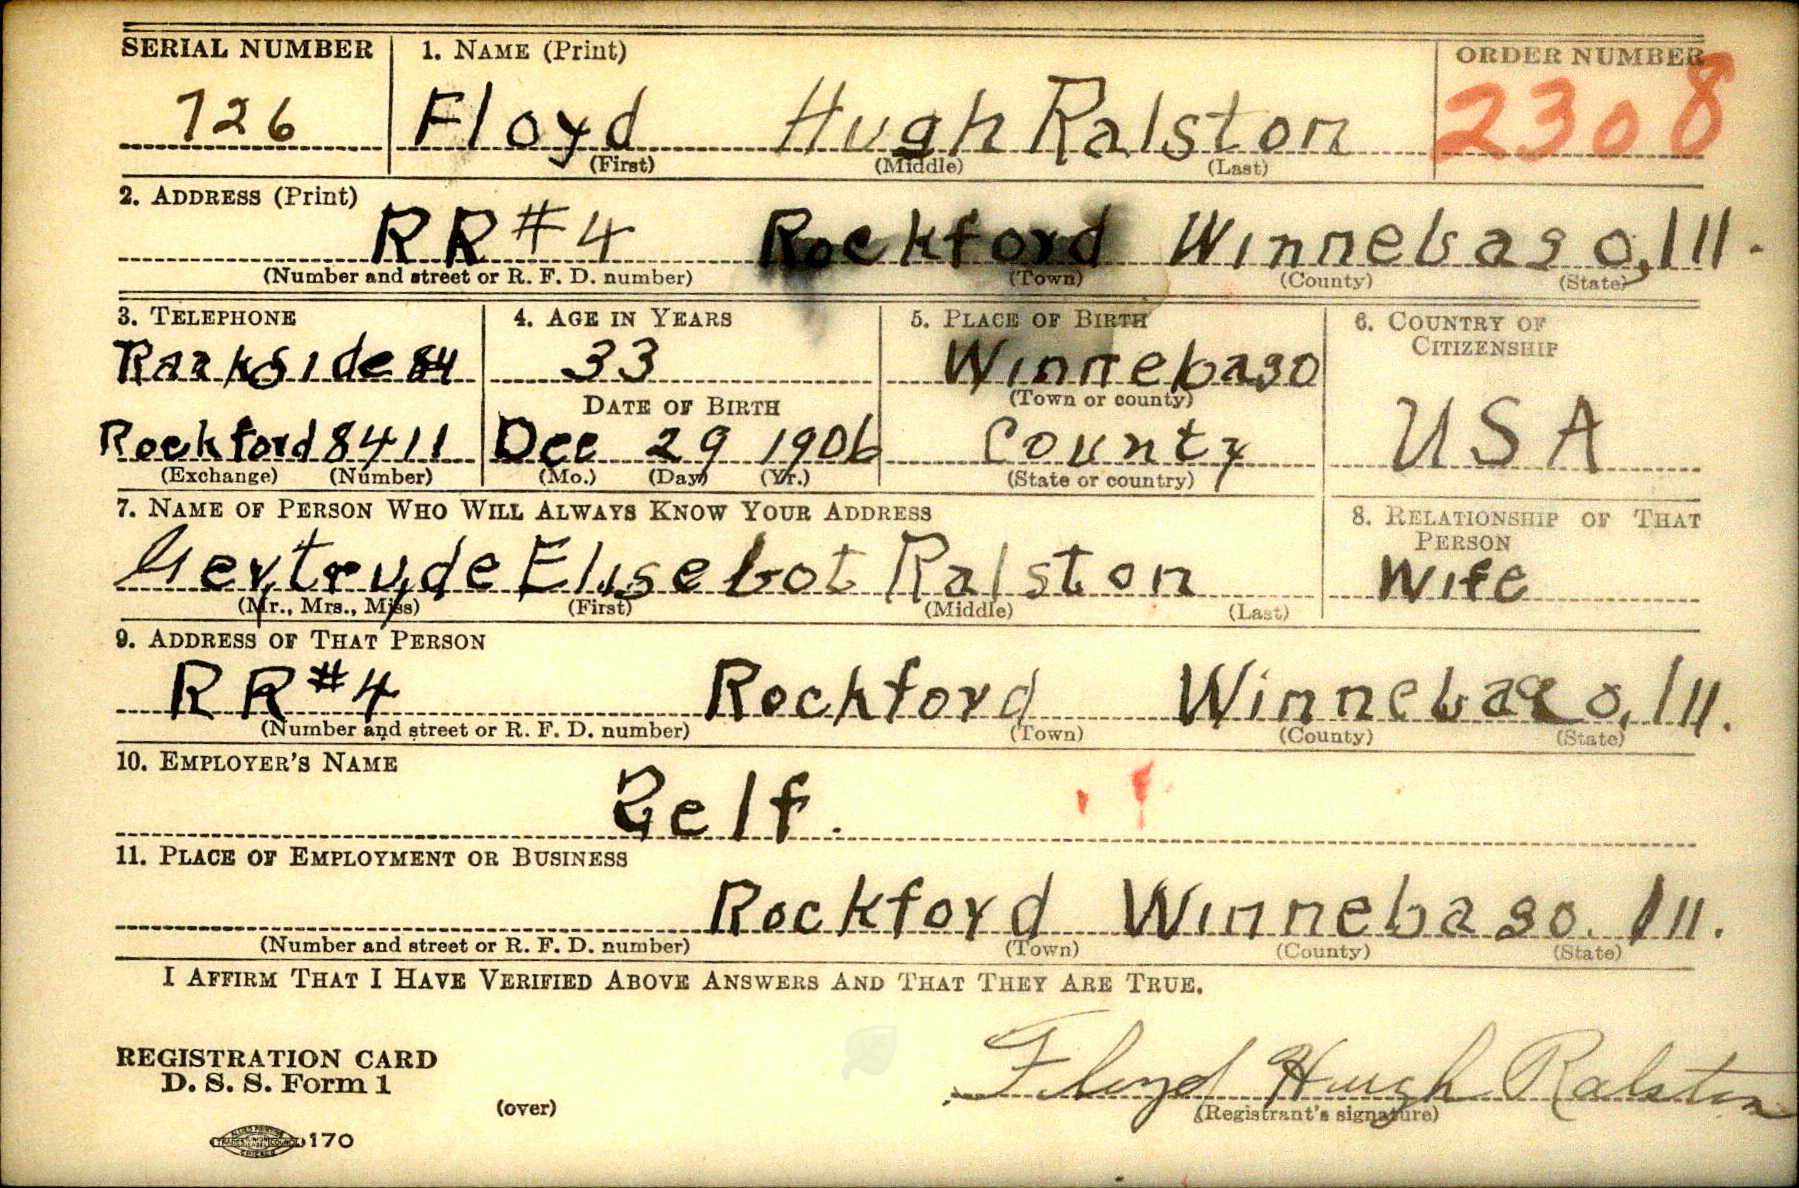 SERIAL NUMBER 1. NAME (Print) ORDER NUMBER
726 Floyd Hugh Ralston 2308
(First) (Middle) (Last)
2. ADDRESS (Print)
RR#4 Rockford Winnebago, Ill.
(Number and street or R. F. D. number) (Town) (County) (State)
3. TELEPHONE 4. AGE IN YEARS 5. PLACE OF BIRTH 6. COUNTRY OF CITIZENSHIP
Parkside 84 33 Winnebago
DATE OF BIRTH (Town or county)
Rockford 8411 Dec 29 1906 County USA
(Exchange) (Number) (Mo.) (Day) (Yr.) (State or country)
7. NAME OF PERSON WHO WILL ALWAYS KNOW YOUR ADDRESS 8. RELATIONSHIP OF THAT PERSON
Gertrude Elisebot Ralston Wife
(Mr., Mrs., Miss) (First) (Middle) (Last)
9. ADDRESS OF THAT PERSON
RR#4 Rockford Winnebago, Ill.
(Number and street or R. F. D. number) (Town) (County) (State)
10. EMPLOYER'S NAME
Self.
11. PLACE OF EMPLOYMENT OR BUSINESS
Rockford Winnebago. Ill.
(Number and street or R. F. D. number) (Town) (County) (State)
I AFFIRM THAT I HAVE VERIFIED ABOVE ANSWERS AND THAT THEY ARE TRUE.
REGISTRATION CARD
D. S. S. Form 1
Floyd Hugh Ralston
(over) (Registrant's signature)
170